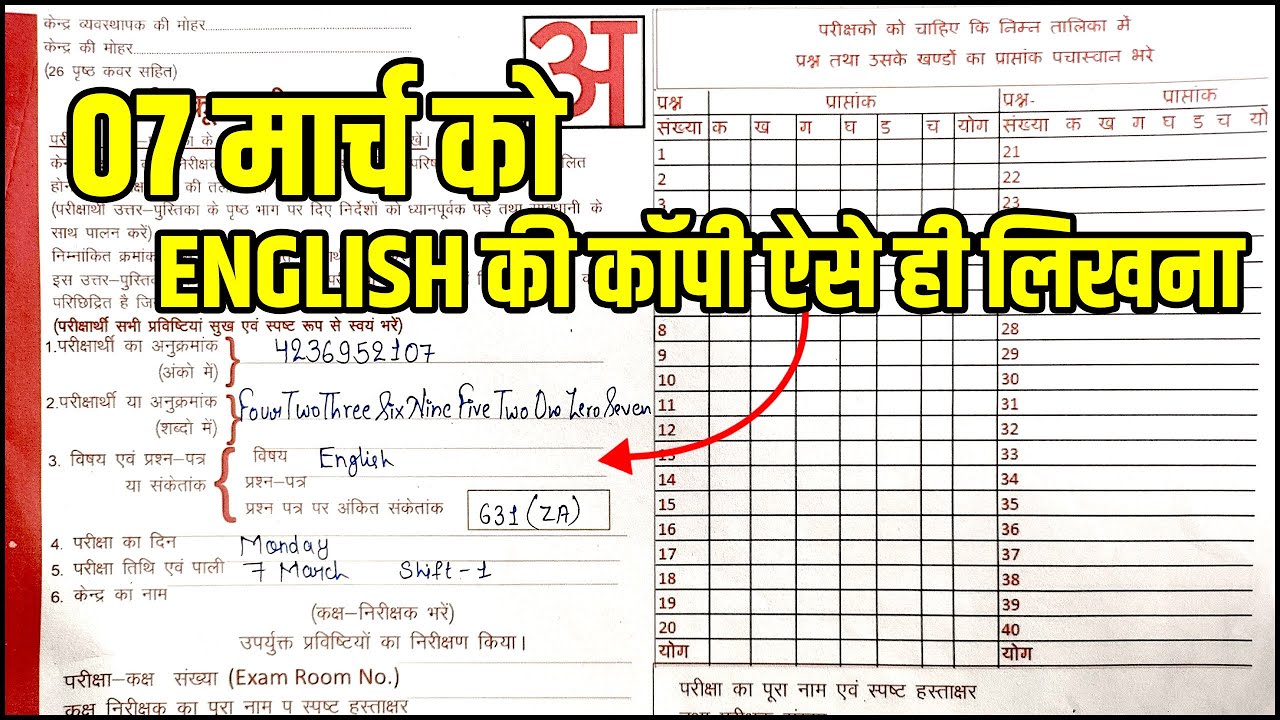 केन्द्र व्यवस्थापक की मोहर
केन्द्र की मोहर
(26 पृष्ठ कवर सहित)
अ
07 मार्च को
ENGLISH की कॉपी ऐसे ही लिखना
(परीक्षार्थी उत्तर–पुस्तिका के पृष्ठ भाग पर दिए निर्देशों को ध्यानपूर्वक पड़े तथा के
साथ पालन करें)
निम्नांकित क्रमांक
इस उत्तर–पुस्तिक
परिछिद्रित है
(परीक्षार्थी सभी प्रविष्टियां सुख एवं स्पष्ट रूप से स्वयं भरें)
1.परीक्षार्थी का अनुक्रमांक 4236952107
(अंको में)
2.परीक्षार्थी या अनुक्रमांक Four Two Three Six Nine Five Two One Zero Seven
(शब्दो में)
3. विषय एवं प्रश्न–पत्र विषय English
या संकेतांक प्रश्न–पत्र
प्रश्न पत्र पर अंकित संकेतांक 631 (ZA)
4. परीक्षा का दिन Monday
5. परीक्षा तिथि एवं पाली 7 March Shift - 1
6. केन्द्र का नाम
(कक्ष–निरीक्षक भरें)
उपर्युक्त प्रविष्टियों का निरीक्षण किया।
परीक्षा–कक्ष संख्या (Exam Room No.)
कक्ष निरीक्षक का पूरा नाम प स्पष्ट हस्ताक्षर
परीक्षको को चाहिए कि निम्न तालिका में
प्रश्न तथा उसके खण्डों का प्राप्तांक पचास्वान भरे
प्रश्न प्राप्तांक प्रश्न- प्राप्तांक
संख्या क ख ग घ ड च योग संख्या क ख ग घ ड च यो
1 21
2 22
3 23
8 28
9 29
10 30
11 31
12 32
13 33
14 34
15 35
16 36
17 37
18 38
19 39
20 40
योग योग
परीक्षा का पूरा नाम एवं स्पष्ट हस्ताक्षर